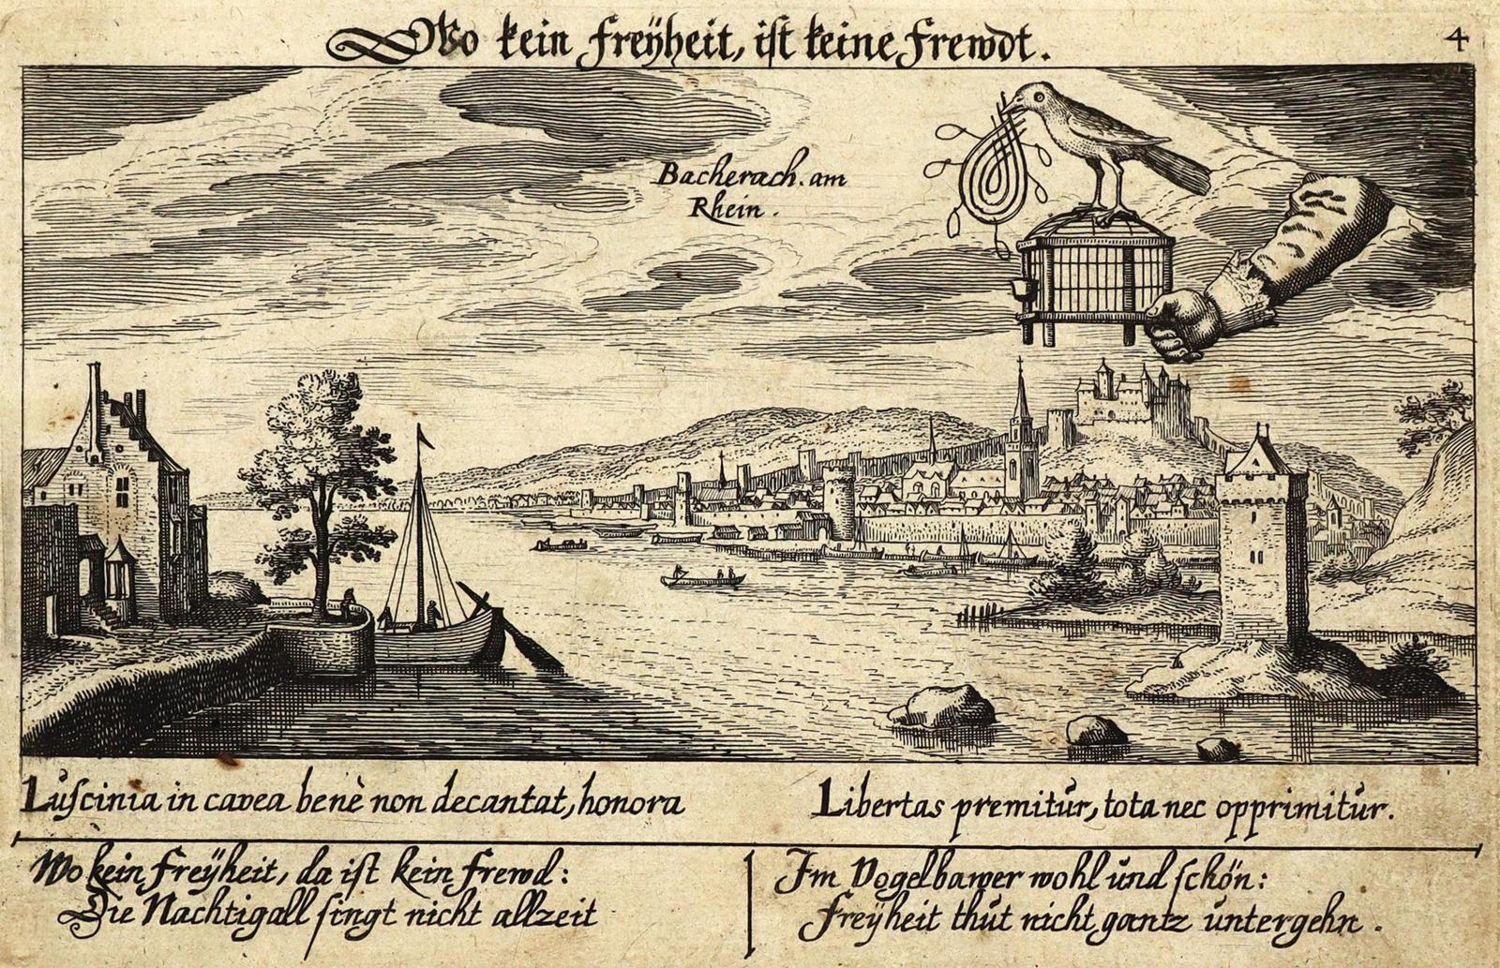 Wo kein freÿheit, ist keine frewdt.
4
Bacherach. am
Rhein.
Luscinia in cavea benè non decantat, honora
Libertas premitur, tota nec opprimitur.
Wo kein freÿheit, da ist kein frewd:
Die Nachtigall singt nicht allzeit
Im Vogelbawer wohl und schön:
freÿheit thut nicht gantz untergehn.